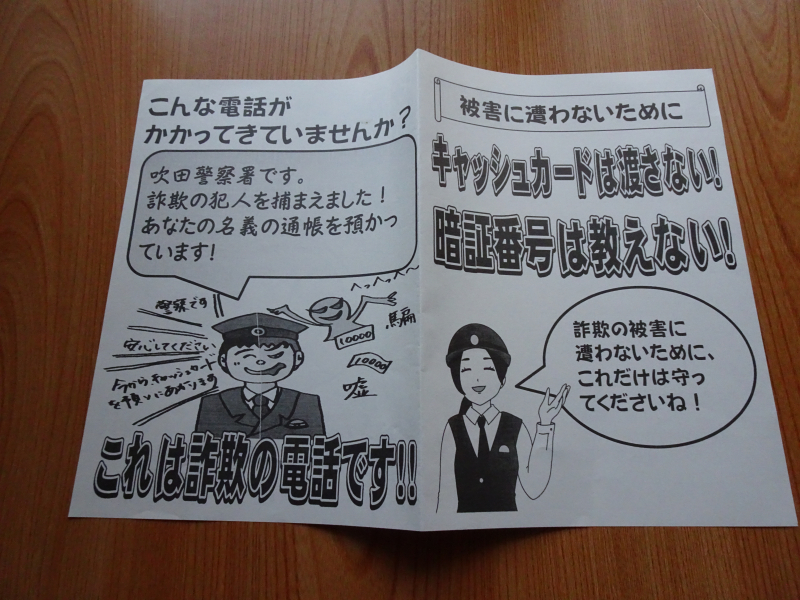 こんな電話が
かかってきていませんか?
吹田警察署です。
詐欺の犯人を捕まえました!
あなたの名義の通帳を預かっ
ています!
へっへっへ〜
警察です
安心してください
今からキャッシュカード
を予買いにあがります
10000
10000
騙
嘘
これは詐欺の電話です!!
被害に遭わないために
キャッシュカードは渡さない!
暗証番号は教えない!
詐欺の被害に
遭わないために、
これだけは守っ
てくださいね!